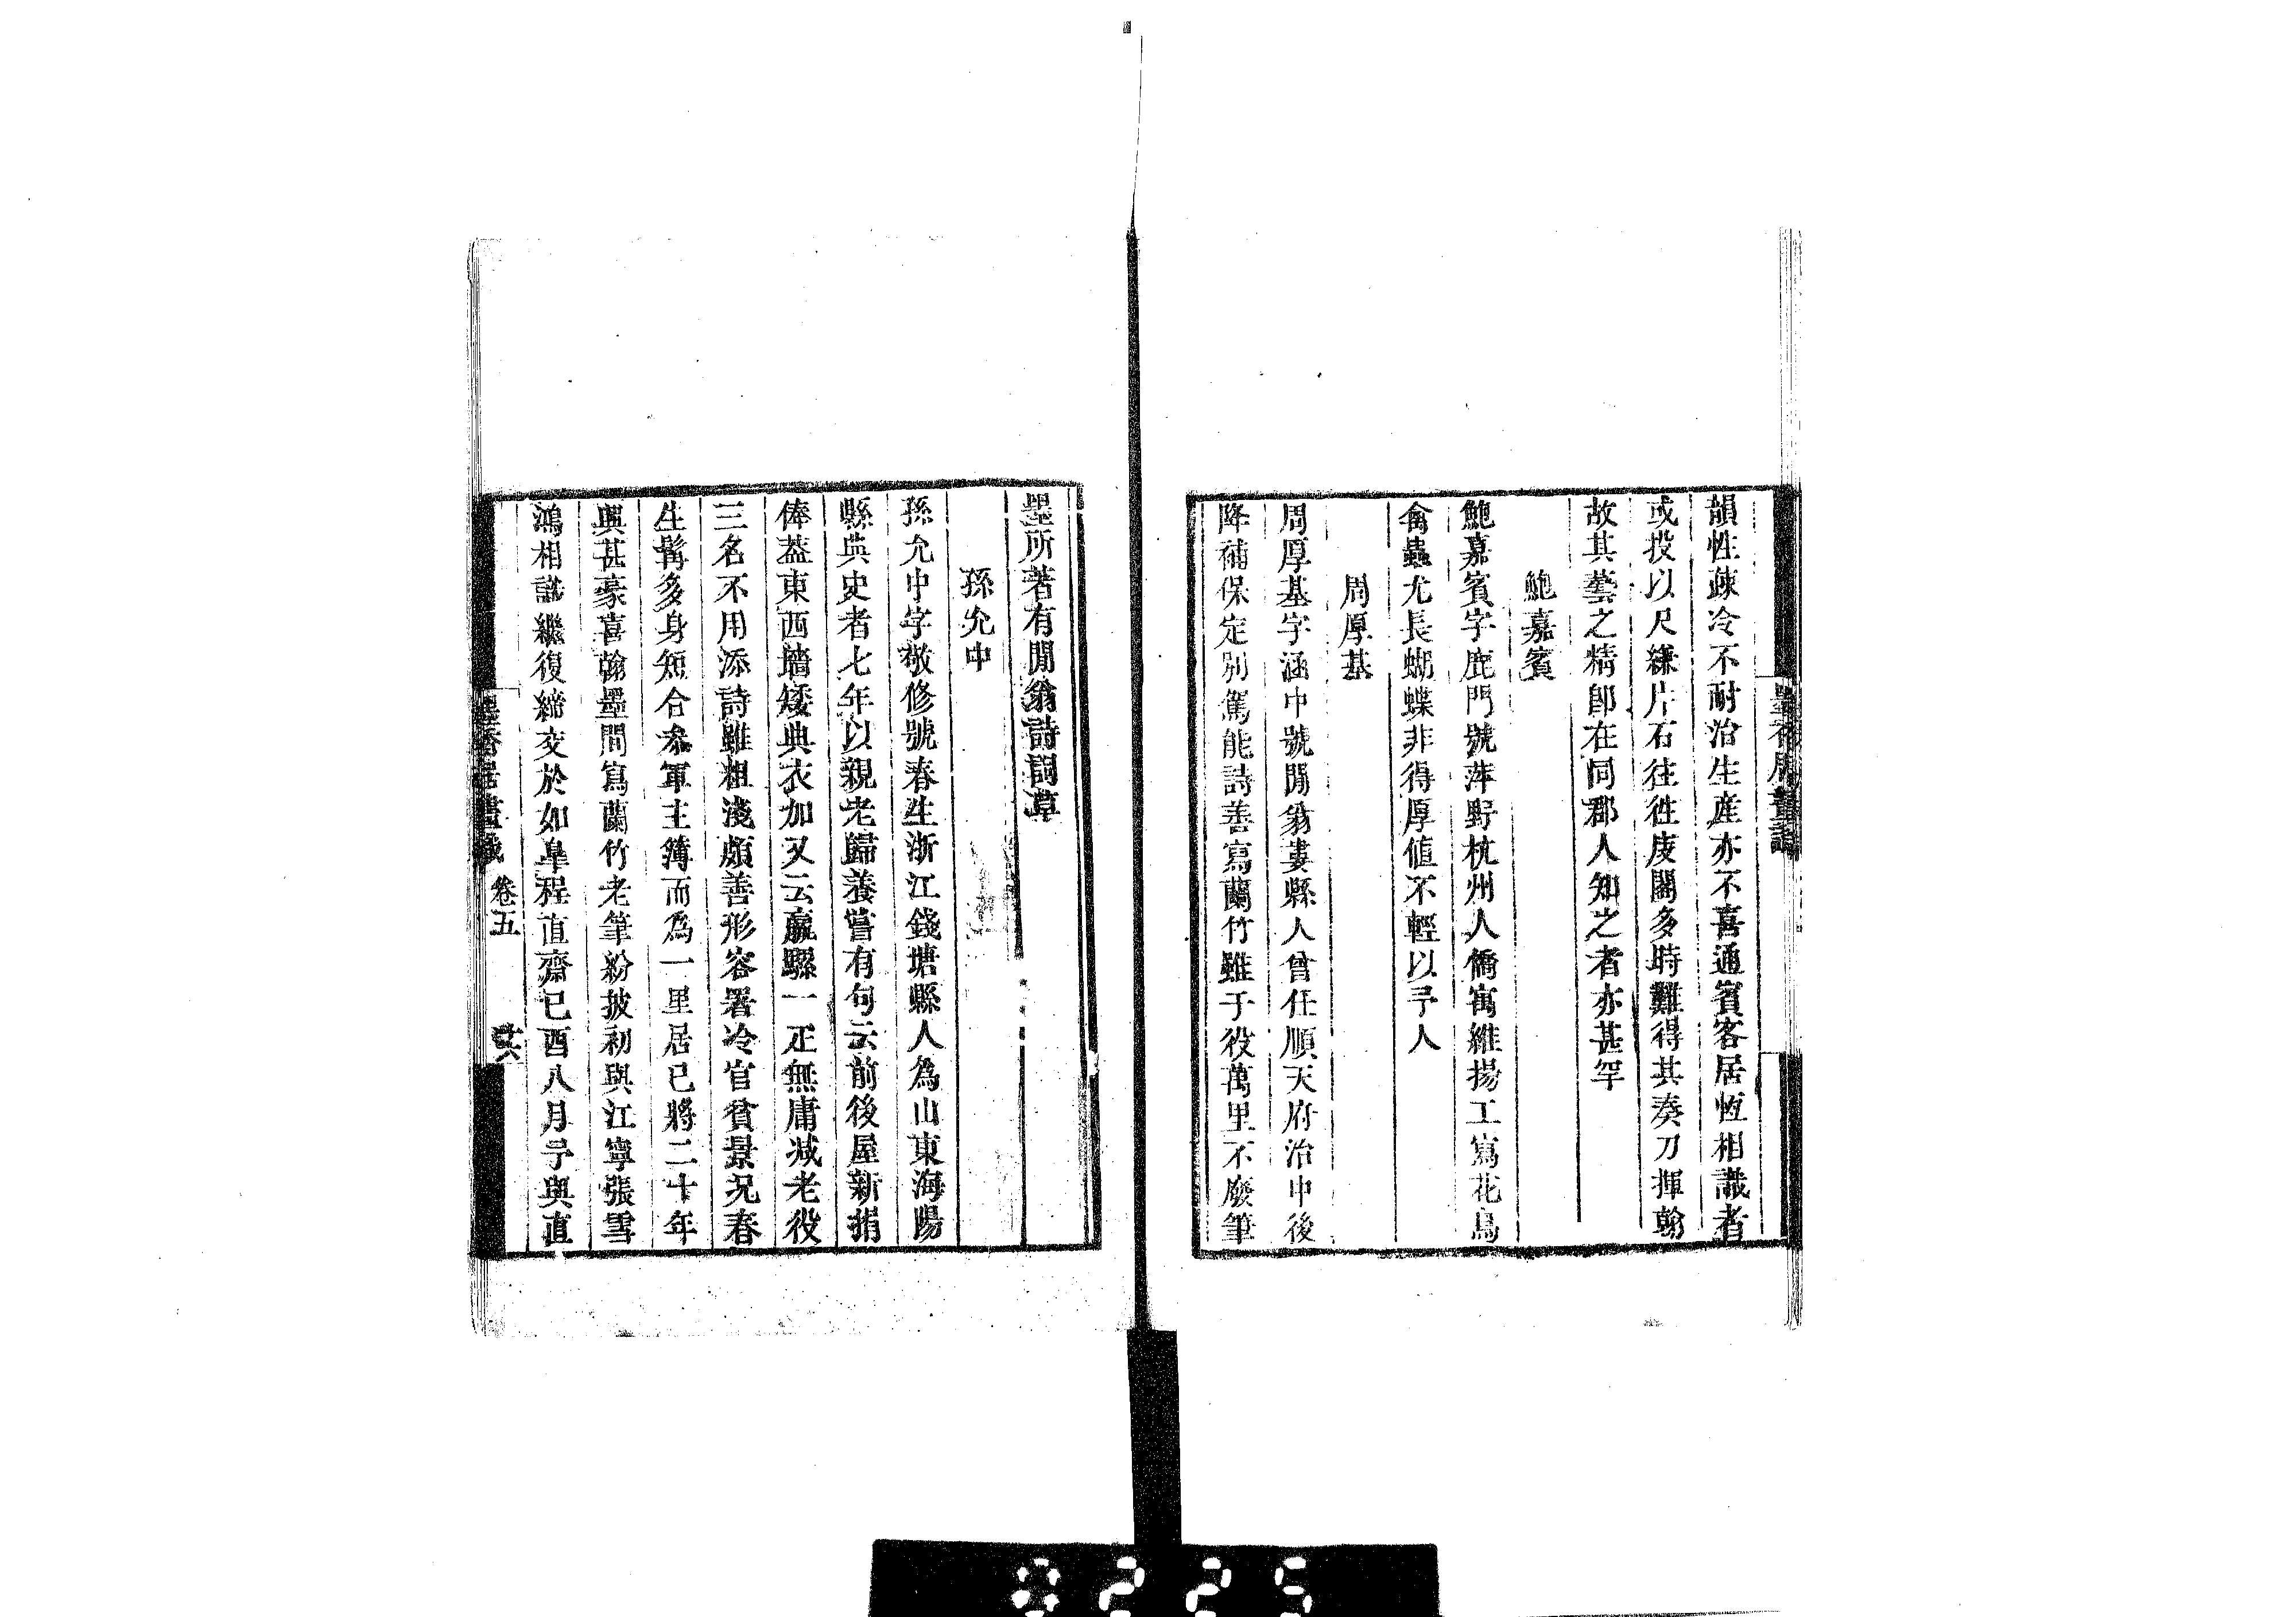 韻性疎冷不耐治生産亦不喜通賓客居恆相識者
或投以尺縑片石往徃庋閣多時難得其奏刀揮翰
故其藝之精卽在同郡人知之者亦甚罕
鮑嘉賓
鮑嘉賓字鹿門號萍野杭州人僑寓維揚工寫花鳥
禽蟲尤長蝴蝶非得厚値不輕以予人
周厚基
周厚基字涵中號閒翁婁縣人曾任順天府治中後
降補保定別駕能詩善寫蘭竹雖于役萬里不廢筆
墨所著有閒翁詩詞草
孫允中
孫允中字敬修號春生浙江錢塘縣人為山東海陽
縣典史者七年以親老歸養嘗有句云前後屋新捐
俸葢東西墻矮典衣加又云羸騾一疋無庸减老役
三名不用添詩雖粗淺頗善形容署冷官貧景况春
生髯多身短合叅軍主簿而為一里居已將二十年
興甚豪喜翰墨間寫蘭竹老筆紛披初與江寧張雪
鴻相識繼復締交於如臯程直齋已酉八月予與直
墨香居畫識 卷五 共
0225